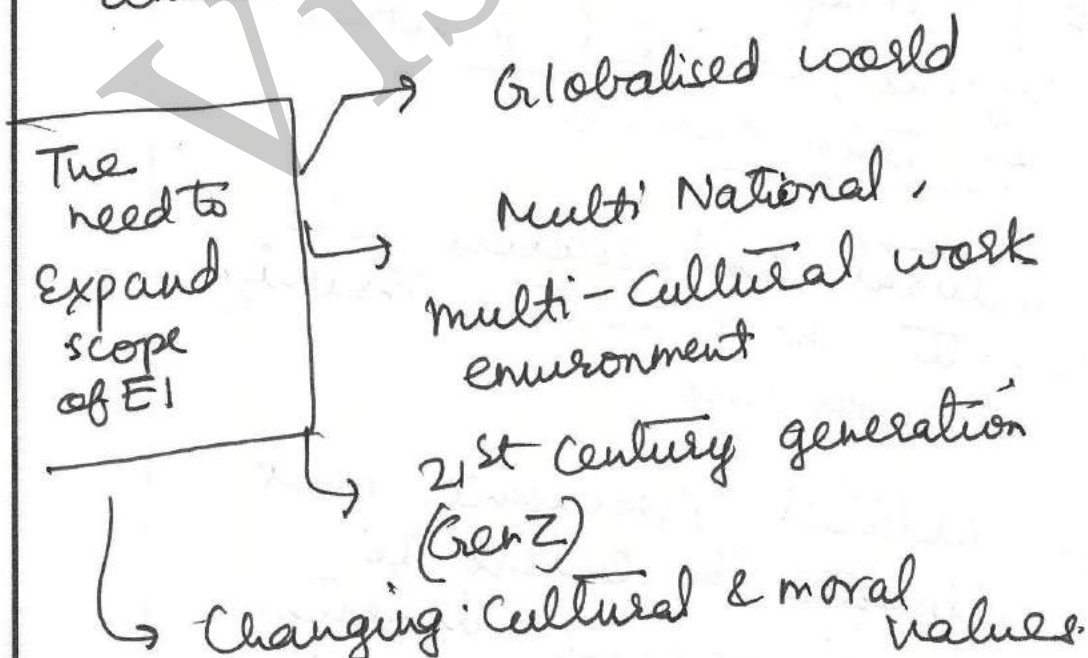 The
need to
Expand
scope
of EI
Globalised world
Multi National,
multi-Cultural work
environment
21st Century generation
(Gen Z)
Changing Cultural & moral
values.